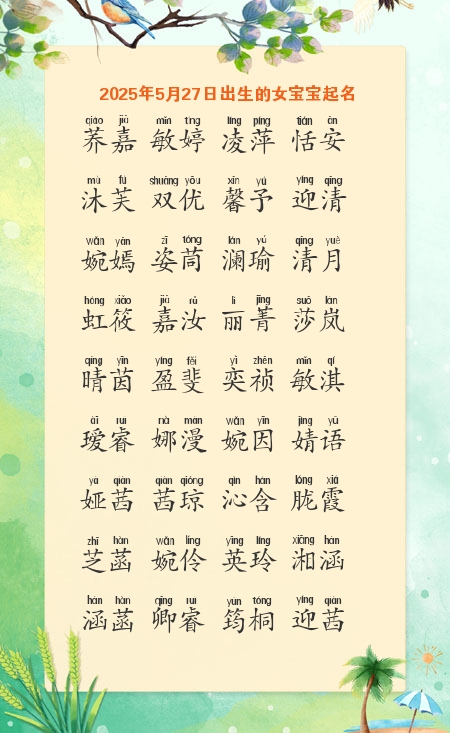 2025年5月27日出生的女宝宝起名
qiáo jiā mǐn tíng líng píng tián ān
荞嘉 敏婷 凌萍 恬安
mù fú shuāng yōu xīn yǔ yíng qīng
沐芙 双优 馨予 迎清
wǎn yān zī tóng lán yú qīng yuè
婉嫣 姿茼 澜瑜 清月
hóng xiǎo jiā rǔ lì jīng suō lán
虹筱 嘉汝 丽菁 莎岚
qíng yīn yíng fěi yì zhēn mǐn qí
晴茵 盈斐 奕祯 敏淇
ài ruì nà màn wǎn yīn jìng yǔ
瑷睿 娜漫 婉因 婧语
yà qiàn qiàn qióng qìn hán lóng xiá
娅茜 茜琼 沁含 胧霞
zhī hàn wǎn líng yīng líng xiāng hán
芝菡 婉伶 英玲 湘涵
hán hàn qīng ruì yún tóng yíng qiàn
涵菡 卿睿 筠桐 迎茜